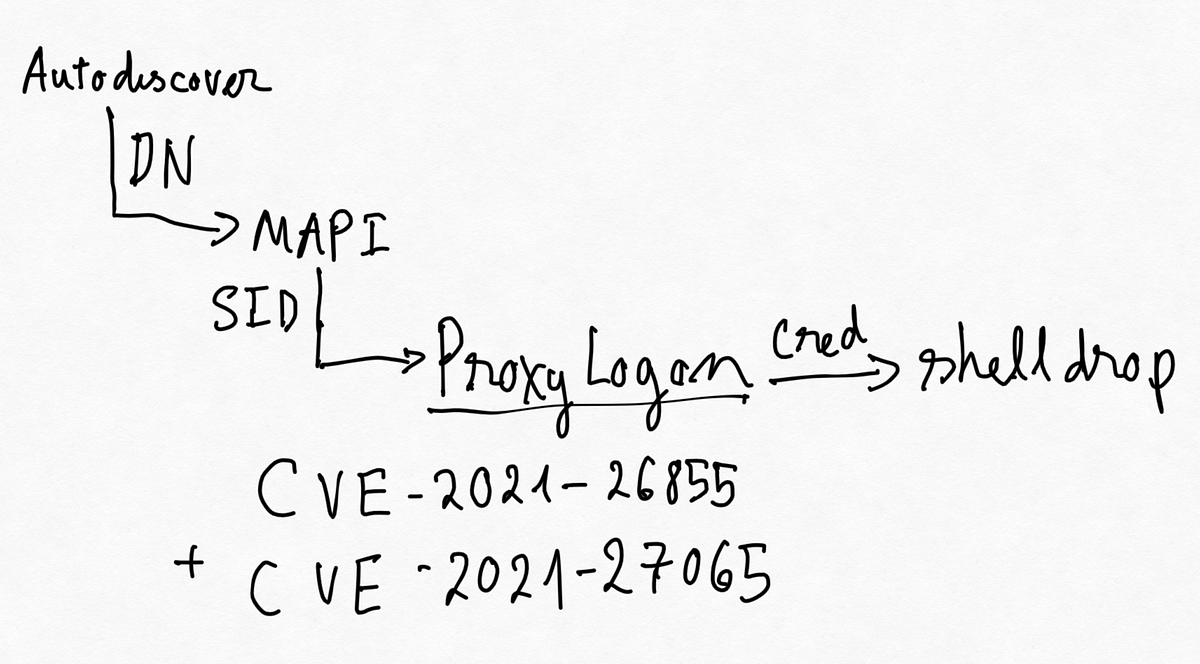 Autodiscover
DN
MAPI
SID
ProxyLogon
cred
shell drop
CVE-2021-26855
+ CVE-2021-27065